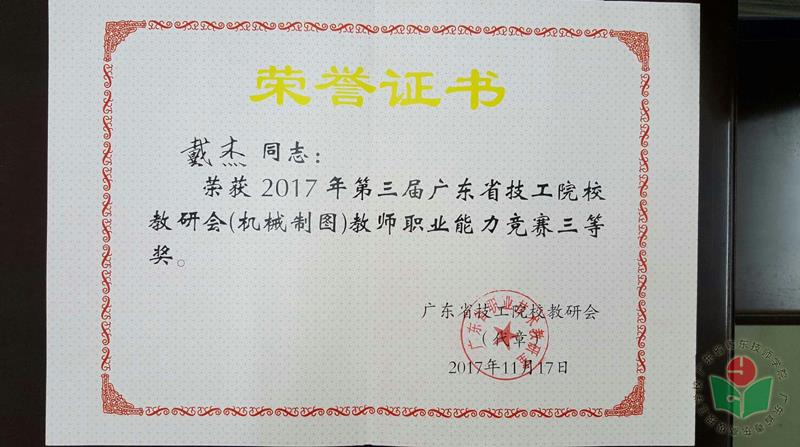 荣誉证书
戴杰 同志：
荣获 2017 年第三届广东省技工院校
教研会(机械制图)教师职业能力竞赛三等
奖。
广东省技工院校教研会
（代章）
2017年11月17日